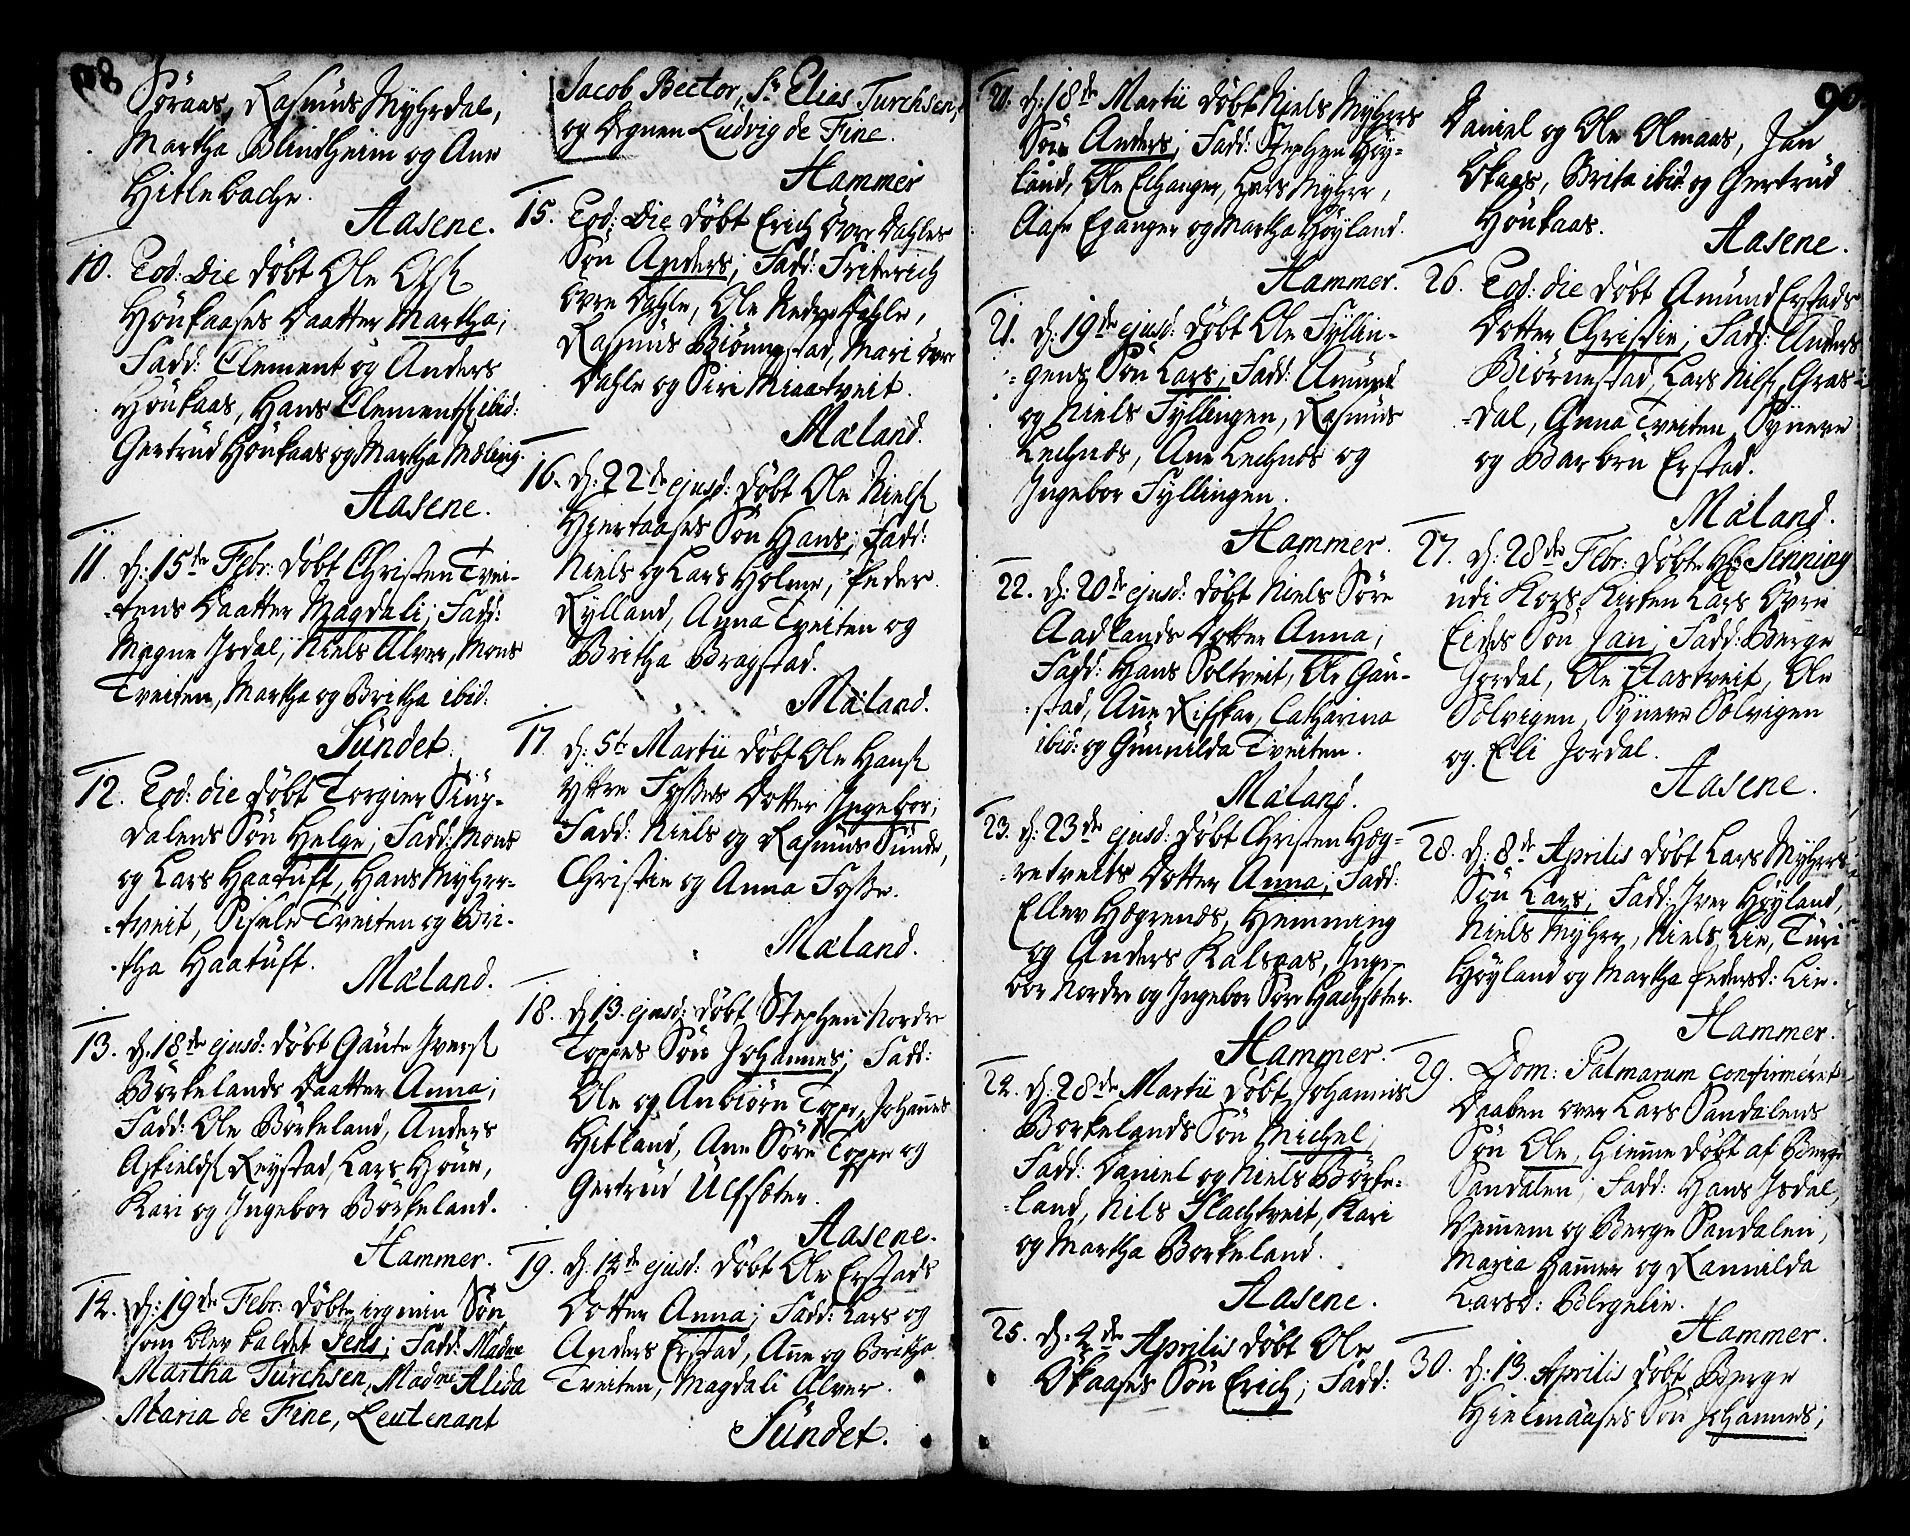 98
Söraas, Rasmus Myhrdal,
Martha Blindheim og Ane
Hitlebache.
Aasene.
10. Eod: die döbt Ole Ols:
Höukaases Daatter Martha;
Fadd: Clement og Anders
Höukaas, Hans Clements: ibid:
Gertrud Höukaas og Martha Mæling.
Aasene.
11. d: 15de Febr: döbt Christen Tvei-
-tens Daatter Magdali; Fadd:
Magne Isdal, Niels Alver, Mons
Tveiten, Martha og Britha ibid:
Sundet.
12. Eod: die döbt Torgier Süg-
dalens Sön Helge; Fadd: Mons
og Lars Haatuft, Hans Myhre-
-tveit, Sisele Tveiten og Bri-
-tha Haatuft.
Mæland.
13. d: 18de ejusd: döbt Gaute Ivers:
Börkelands Daatter Anna;
Fadd: Ole Börkeland, Anders
Askields: Reystad, Lars Höue,
Kari og Ingebor Börkeland.
Hammer.
14. d: 19de Febr: döbte ieg min Sön
som blev kaldet Jens; Fadd: Madme
Martha Turchsen, Madme Alida
Maria de Fine, Leutenant
Jacob Bector, Sr Elias Turchsen,
og Degnen Ludvig de Fine.
Hammer
15. Eod: Die döbt Erich Övre Dahles
Sön Anders; Fadd: Friderich
Övre Dahle, Ole Nedre Dahle,
Rasmus Biörnestad, Mari Övre
Dahle og Siri Miaatveit.
Mæland.
16. d: 22de ejusd: döbt Ole Niels:
Hiertaases Sön Hans; Fadd:
Niels og Lars Holme, Peder
Rylland, Anna Tveiten og
Britha Bragstad.
Mæland.
17. d: 5te Martii döbt Ole Hans:
Yttre Fosses Dotter Ingebor;
Fadd: Niels og Rasmus Sunde,
Christie og Anna Fosse.
Mæland.
18. d: 13. ejusd: döbt Stephen Nordre
Toppes Sön Johannes; Fadd:
Ole og Anbiörn Toppe, Johanes
Hitland, Ane Söre Toppe og
Gertrud Ulfsæter.
Aasene.
19. d: 14de ejusd: döbt Ole Erstads
Dotter Anna; Fadd: Lars og
Anders Erstad, Ane og Britha
Tveiten, Magdali Alver.
Sundet.
90
20. d: 18de Martii döbt Niels Myhres
Sön Anders; Fadd: Stephen Höy-
land, Ole Echanger, Lars Myhre,
Aase Echanger og Martha Höyland.
Hammer.
21. d: 19de ejusd: döbt Ole Fyllin-
-gens Sön Lars; Fadd: Amund
og Niels Fyllingen, Rasmus
Lechnes, Ane Lechnes og
Ingebor Fyllingen.
Hammer.
22. d: 20de ejusd: döbt Niels Söre
Aadlands Dotter Anna;
Fadd: Hans Soltveit, Ole Gau-
-stad, Ane Risskar, Catharina
ibid: og Gunnilda Tveiten.
Mæland.
23. d: 23de ejusd: döbt Christen Hæg-
-retveits Dotter Anna; Fadd:
Ellev Hægrenes, Hemming
og Anders Kalsaas, Inge-
bor Nordre og Ingebor Söre Hachsæter.
Hammer.
24. d: 28de Martii döbt Johannis
Börkelands Sön Michel;
Fadd: Daniel og Niels Börke-
-land, Nils Flachtveit, Kari
og Martha Borkeland.
Aasene.
25. d: 2de Aprilis döbt Ole
Okaases Sön Erich; Fadd:
Daniel og Ole Olmaas, Jan
Okaas, Brita ibid: og Gertrud
Höukaas.
Aasene.
26. Eod: die döbt Amund Erstads
Dotter Christie; Fadd: Anders
Biörnestad, Lars Nils: Gras-
-dal, Anna Tveiten, Synere
og Barbru Erstad.
Mæland.
27. d: 28de Febr: döbte Hr Senning
udi Kors Kirken Lars Övre
Eides Sön Jan; Fadd: Berge
Jordal, Ole Flastveit, Ole
Solvigen, Syneve Solvigen
og Eli Jordal.
Aasene.
28. d: 8de Aprilis döbt Lars Myhres
Sön Lars; Fadd: Iver Höyland,
Niels Myhre, Niels Lie, Turi
Höyland og Martha Pedersd: Lie.
Hammer.
29. Dom: Palmarum confirmeret
Daaben over Lars Sandalens
Sön Ole, hieme döbt af Berge
Sandalen; Fadd: Hans Isdal,
Vemem og Berge Sandalen,
Maria Hamer og Rannilda
Larsd: Blegelie.
Hammer.
30. d: 13. Aprilis döbt Berge
Hielmaases Sön Johannes;